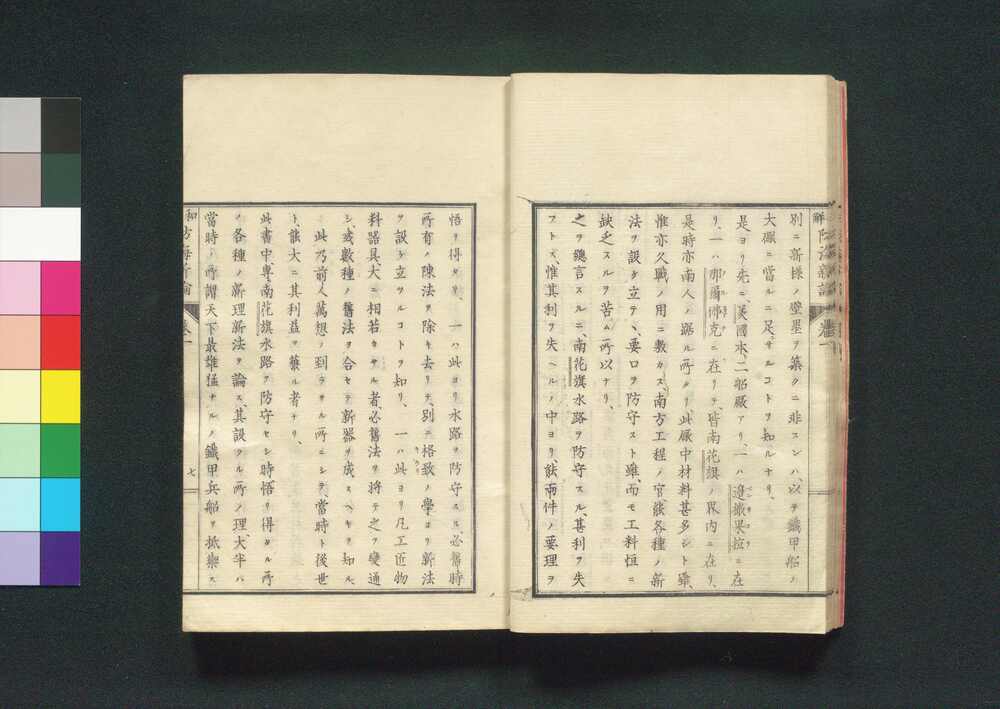 別ニ新様ノ壁壘ヲ築クニ非スンハ、以テ鐵甲船ノ
大礮ニ當ルニ足ラサルコトヲ知ルナリ、
是ヨリ先ニ、美國本、二船厰アリ、一ハ邉撒果拉ニ在
リ、一ハ那爾佛克ニ在リテ、皆南花旗ノ界内ニ在リ、
是時亦南人ノ踞ル所タリ、此厰中材料甚多シト雖、
惟亦久戰ノ用ニ敷カス、南方工程ノ官、能各種ノ新
法ヲ設ケ立テヽ、要口ヲ防守スト雖、而モ工料恒ニ
缺乏スルヲ苦ム所以ナリ、
之ヲ總言スルニ、南花旗水路ヲ防守スル、甚利ヲ失
フトス、惟其利ヲ失ヘルノ中ヨリ、猶兩件ノ要理ヲ
悟リ得タリ、一ハ此ヨリ水路ヲ防守スル、必舊時
所有ノ陳法ヲ除キ去リテ、別ニ格致ノ學ヨリ新法
ヲ設ケ立ツルコトヲ知リ、一ハ此ヨリ凡工匠物
料器具、大ニ相若カサル者、必舊法ヲ將テ之ヲ變通
シ、或數種ノ舊法ヲ合セテ新器ヲ成スヘキヲ知ル、
此乃前人萬想ノ到ラサル所ニシテ、當時ト後世
ト、能大ニ其利益ヲ獲ル者ナリ、
此書中、專南花旗水路ヲ防守セシ時悟リ得タル所
ノ各種ノ新理新法ヲ論ス、其設クル所ノ理、大半ハ
當時ノ所謂天下最雄猛ナルノ鐵甲兵船ヲ抵禦ス
七